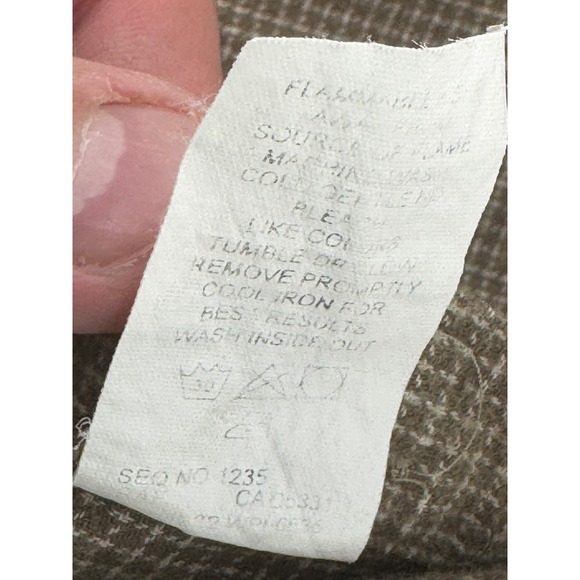 SOURCE OF FLAME
MACHINE WAS
COLD GENTLE NO
BLEACH
LIKE COLORS
TUMBLE DRY LOW
REMOVE PROMPTLY
COOL IRON FOR
BEST RESULTS
WASH INSIDE OUT
30
SEQ NO 1235
CA 05331